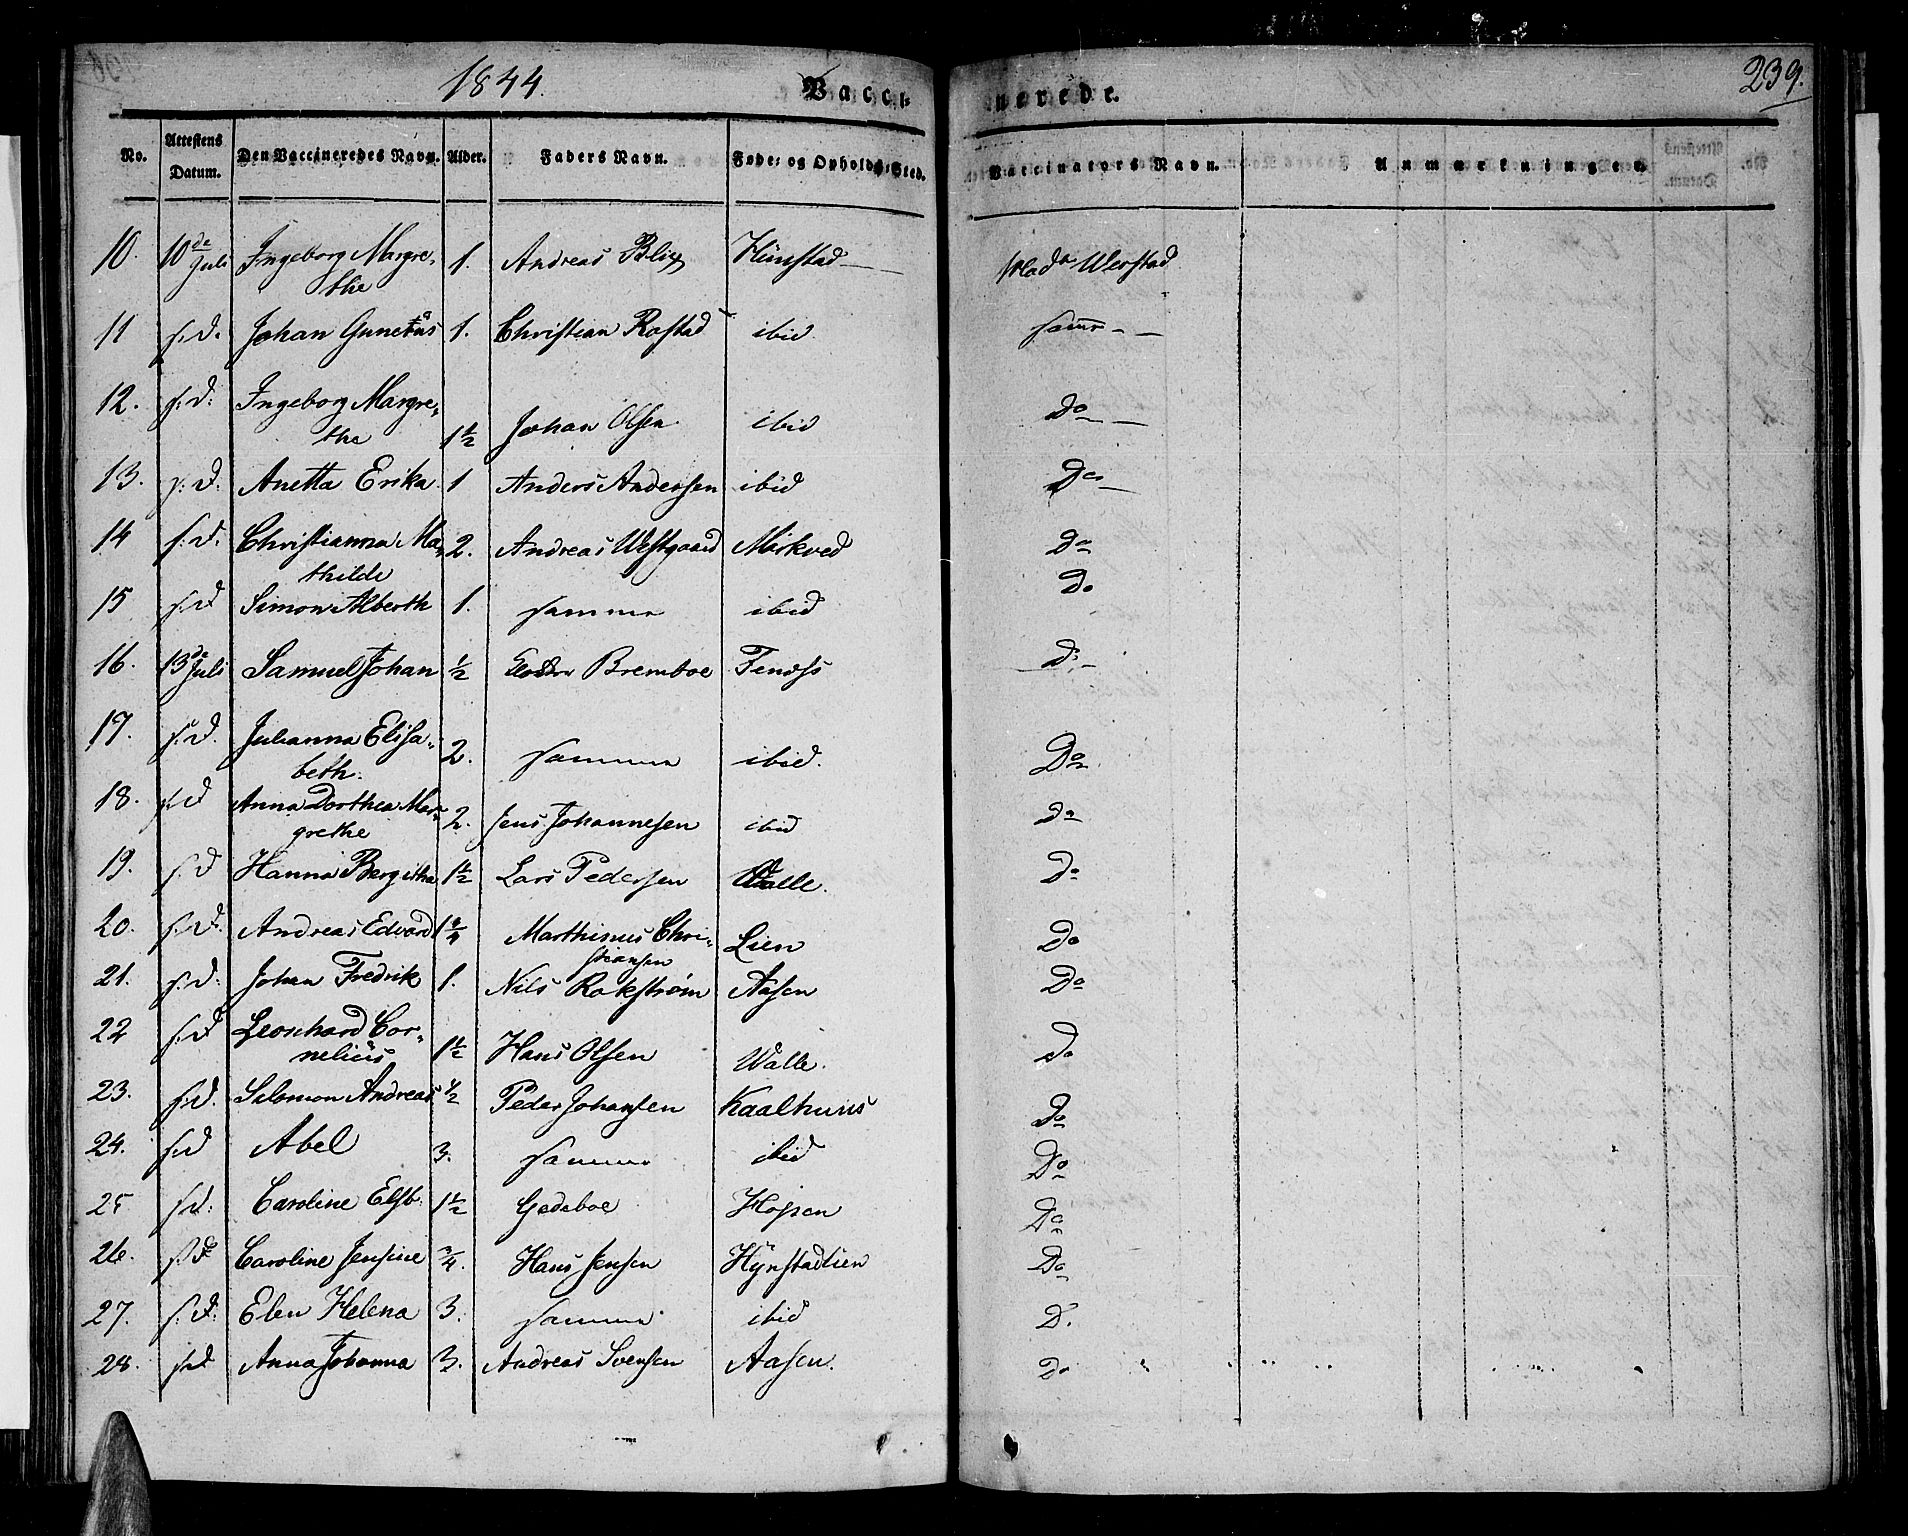 1844.
Vacci-
nerede.
239.
No. Attestens Datum. Den Vaccineredes Navn. Alder. Faders Navn. Føde- og Opholds-Sted. Vaccinators Navn. Anmærkninger.
10. 10de Juli Ingeborg Margre-
the 1. Andreas Blix Hünstad Werstad
11 s.d. Johan 1. Christian Rostad ibid samme
12. s:d: Ingeborg Margre-
the 1½ Johan Olsen ibid Do
13. s:d: Anetta Erika 1 Anders Andersen ibid Do
14 s:d. Christianna Ma-
thilde 2. Andreas Westgaard Mørkved Do
15 s:d Simon Alberth 1. samme ibid Do
16. 13de Juli Samuel Johan ½ Bremboe D:
17. s:d. Julianna Elisa-
beth. 2. samme ibid. Do
18. s:d Anna Dorthea Mar-
grethe 2. Jens Johannesen ibid Do
19. s:d Hanna Bergitha 1½ Lars Pedersen Walle. Do
20. s:d: Andreas Edvard 1¾ Marthinus Chri-
stiansen Lien Do
21. s:d: Johan Fredrik 1. Nils Rokstrøm Aasen Do
22 s:d Leonhard Cor-
nelius 1½ Hans Olsen Walle. Do
23. s:d. Salomon Andreas ½ Peder Johansen Kaalhuus Do
24. s:d Abel 3. samme ibid Do
25 s:d: Caroline Elsb: 1½ Gedeboe Hopen Do
26. s:d: Caroline Jensine ¾. Hans Jensen Hynstadlien Do
27. s:d: Elen Helena 3. samme ibid D.
28. s:d Anna Johanna 3. Andreas Svensen Aasen. Do